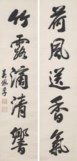 荷風送香氣
竹露滴清響